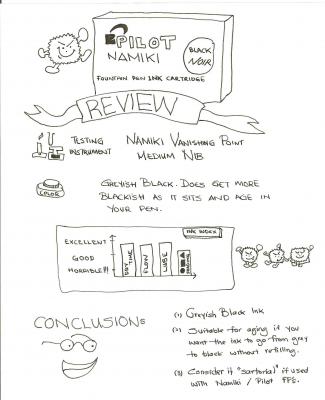 PILOT
NAMIKI
BLACK
NOIR
FOUNTAIN PEN INK CARTRIDGE
REVIEW
TESTING
INSTRUMENT
NAMIKI VANISHING POINT
MEDIUM NIB
COLOR
GREYISH BLACK. DOES GET MORE
BLACKISH AS IT SITS AND AGE IN
YOUR PEN.
INK INDEX
EXCELLENT
GOOD
HORRIBLE!!!
DRYTIME
FLOW
LUBE
CONCLUSIONS
(1) GREYISH BLACK INK
(2) SUITABLE FOR AGING IF YOU
WANT THE INK TO GO FROM GREY
TO BLACK WITHOUT REFILLING.
(3) CONSIDER IT "SARTORIAL" IF USED
WITH NAMIKI / PILOT FPS.